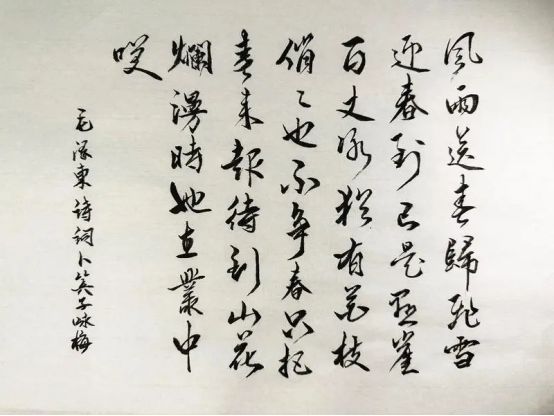 風雨送春歸飛雪
迎春到已是懸崖
百丈冰猶有花枝
俏〻也不争春只把
春来報待到山花
爛漫時她在叢中
咲
毛澤東詩詞卜算子咏梅